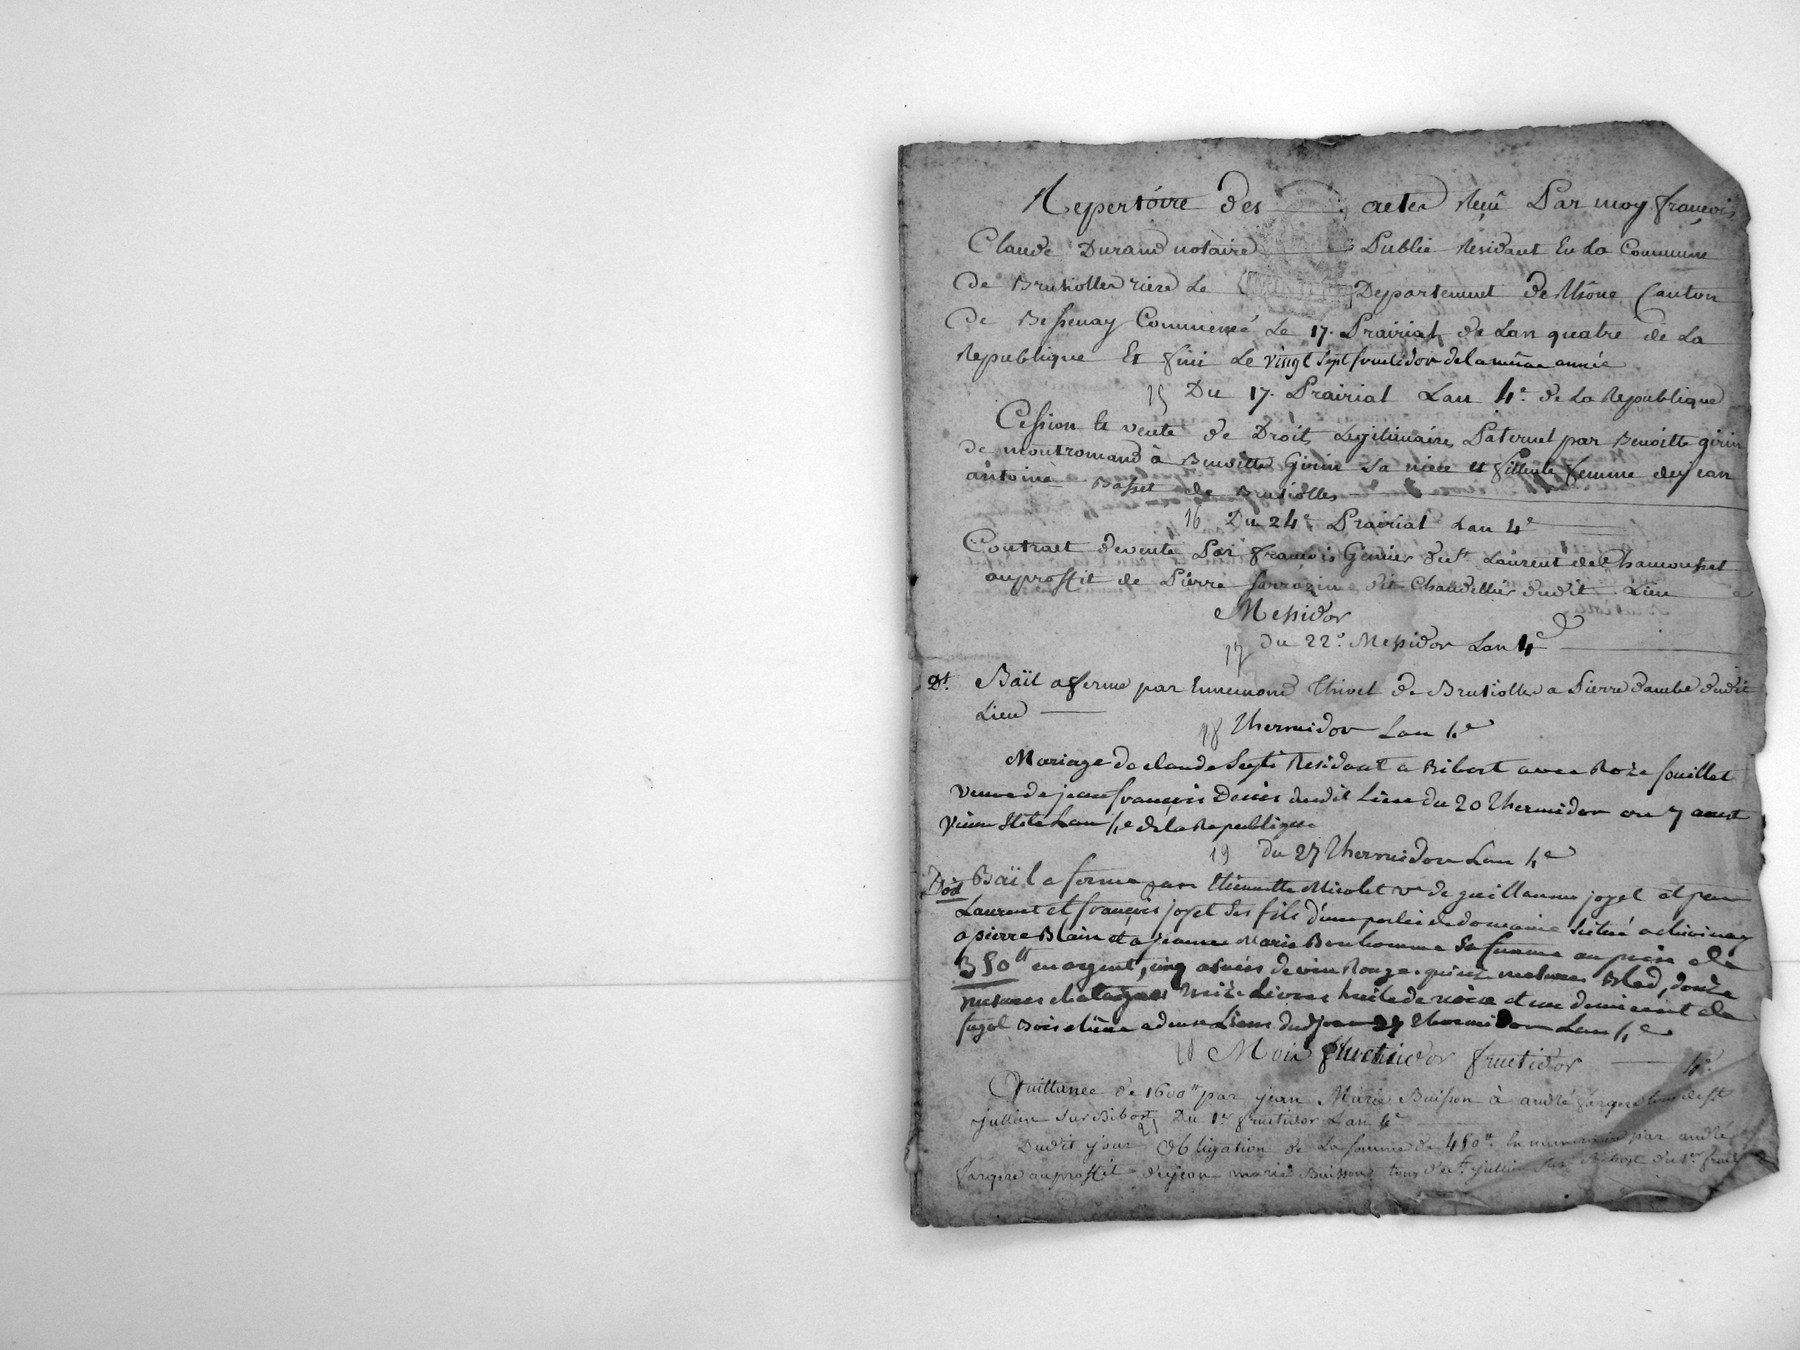 Repertoire des actes Reçu Par moy françois
Claude Durand notaire Public Residant En La Commune
de Brusiolles riere Le Departement de Rhône Canton
de Bessenay Commencé Le 17. Prairial de Lan quatre de La
Republique Et fini Le vingt sept fructidor de la même année
15 Du 17. Prairial Lan 4e. de La Republique
Cession et vente de Droits Legitimaires Paternel par Benoitte girin
de montromand a Benoitte Girin sa niece et filleule femme de jean
antoine Basset de Brusiolles
16 Du 24e Prairial Lan 4e
Contract de vente Par françois Genier de St Laurent de Chamousset
au proffit de Pierre sarrazin dit Chandellier dudit Lieu
Messidor
17 du 22e. Messidor Lan 4e
Dt. Bail a ferme par Ennemond Thivel de Brusiolles a Pierre dudit
Lieu
18 Thermidor Lan 4e
Mariage de claude Residant a Bibost avec Roze
veuve de jean françois Denis dudit Lieu du 20 Thermidor ou 7 aoust
vieux Stile Lan 4e de la Republique
19 du 27 Thermidor Lan 4e
Bail a ferme par Thimotte ve de guillaume joyet et par
Laurent et françois joyet ses fils d'une partie de domaine situé a chivinay
a pierre Blain et a jeanne Marie Bonhomme sa femme au prix de
350tt en argent, cinq asnées de vin Rouge. quinze mesures Bled, douze
mesures chataignes treize Livres huile de noix et un demi cent de
fagot Bois a deux Liens dudit jour 27 Thermidor Lan 4e
Mois fructidor fructidor 4e.
Quittance de 1600tt par jean Marie Buisson à andré fargere tous de St
jullien sur Bibost Du 1er fructidor Lan 4e
Dudit jour 21 Obligation de La somme de 450tt. En par andré
fargere au proffit de jean marie Buisson tous de St jullien sur Bibost du 1er